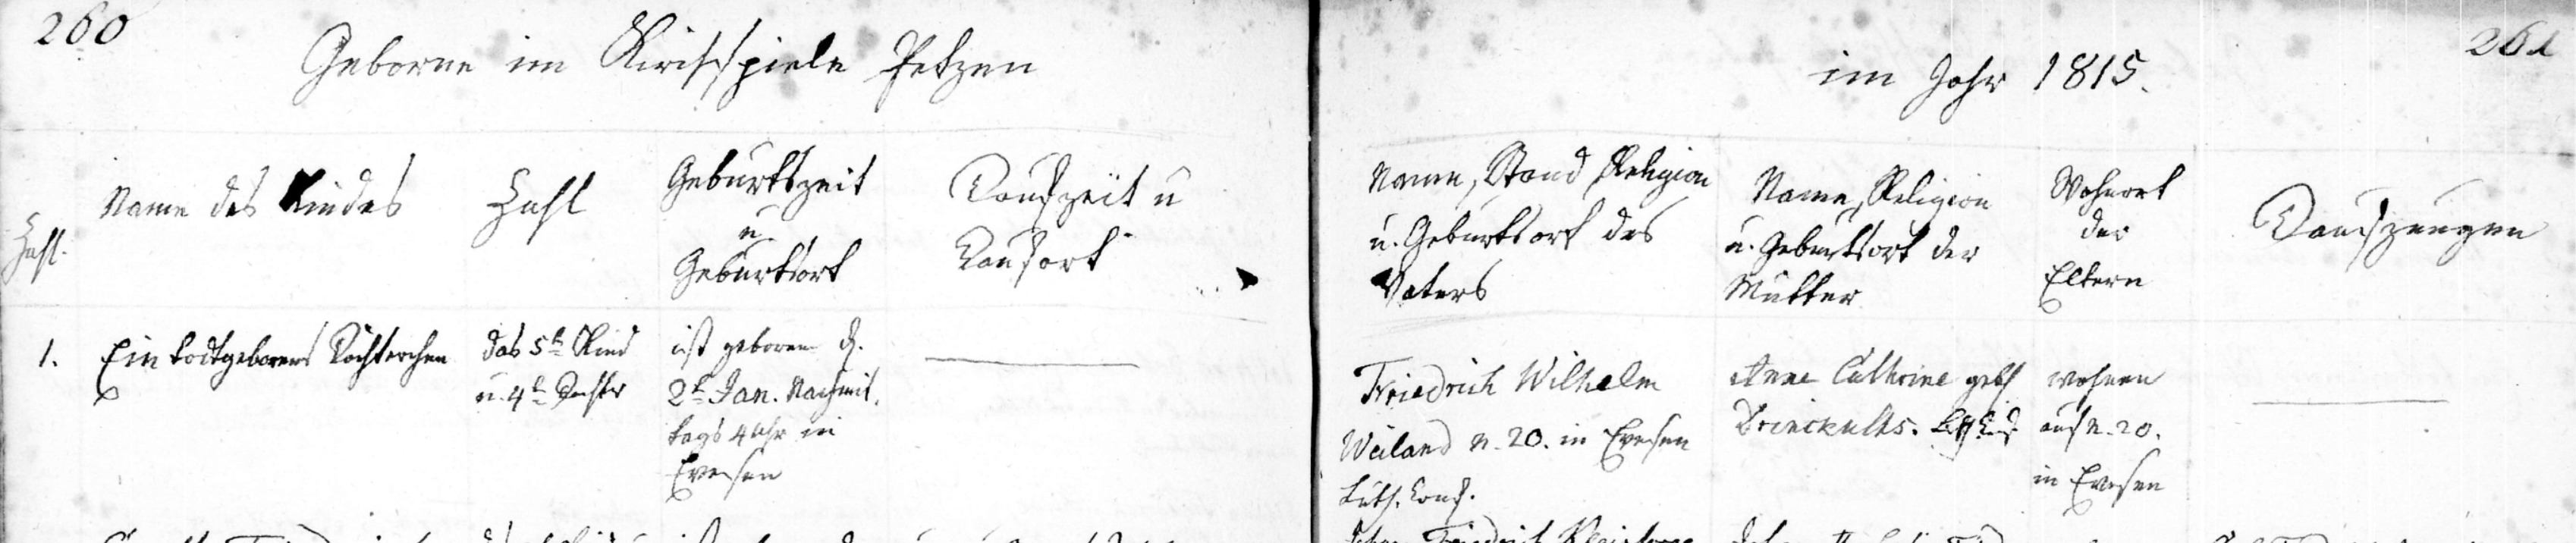 260
Geborne im Kirchspiele Petzen
Zahl.
Name des Kindes
Zahl
Geburtszeit
u
Geburtsort
Taufzeit u
Taufort
1.
Ein todtgebornes Töchterchen
das 5te Kind
u. 4te Tochter
ist geboren d.
2t Jan. Nachmit.
tags 4 Uhr in
Evesen
261
im Jahr 1815.
Name, Stand, Religion
u. Geburtsort des
Vaters
Name, Religion
u. Geburtsort der
Mutter
Wohnort
der
Eltern
Taufzeugen
Friedrich Wilhelm
Weiland n. 20. in Evesen
Luth. Conf.
Anne Cathrine geb
wohnen
auf n. 20.
in Evesen
Friedrich